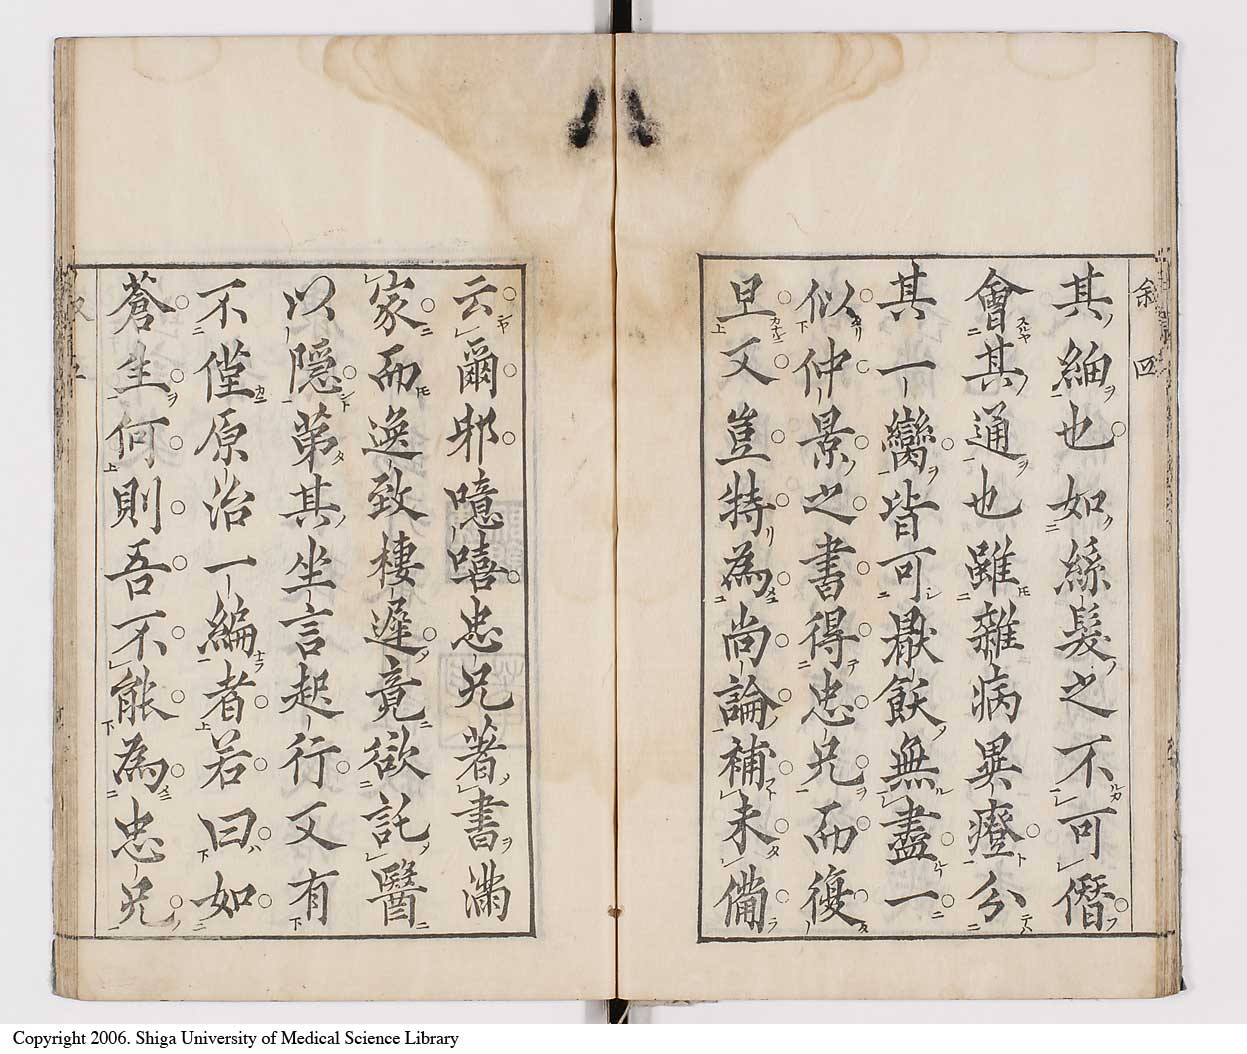 敘 四
其紬也如絲髮之不可僭
會其通也雖雜病異瘽分
其一臠皆可厭飫無盡一
似仲景之書得忠兄而復
旦又豈特為尚論補未備
云爾耶噫嘻忠兄著書滿
家而逸致棲遲竟欲託醫
以隱第其坐言起行又有
不僅原治一編者若曰如
蒼生何則吾不能為忠兄
Copyright 2006. Shiga University of Medical Science Library